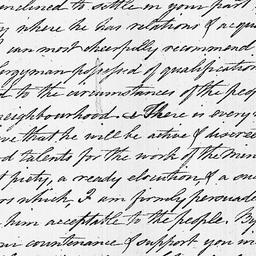 inclined to settle in your part
y where he has relations & acqua
I can most cheerfully recommend
lergyman possessed of qualification
d to the circumstances of the peop
neighbourhood. & There is every
ve that he will be active & discree
od talents for the work of the Mini
t piety, a ready elocution, & a
ors which, I am firmly persuade
him acceptable to the people. By
countenance & support you